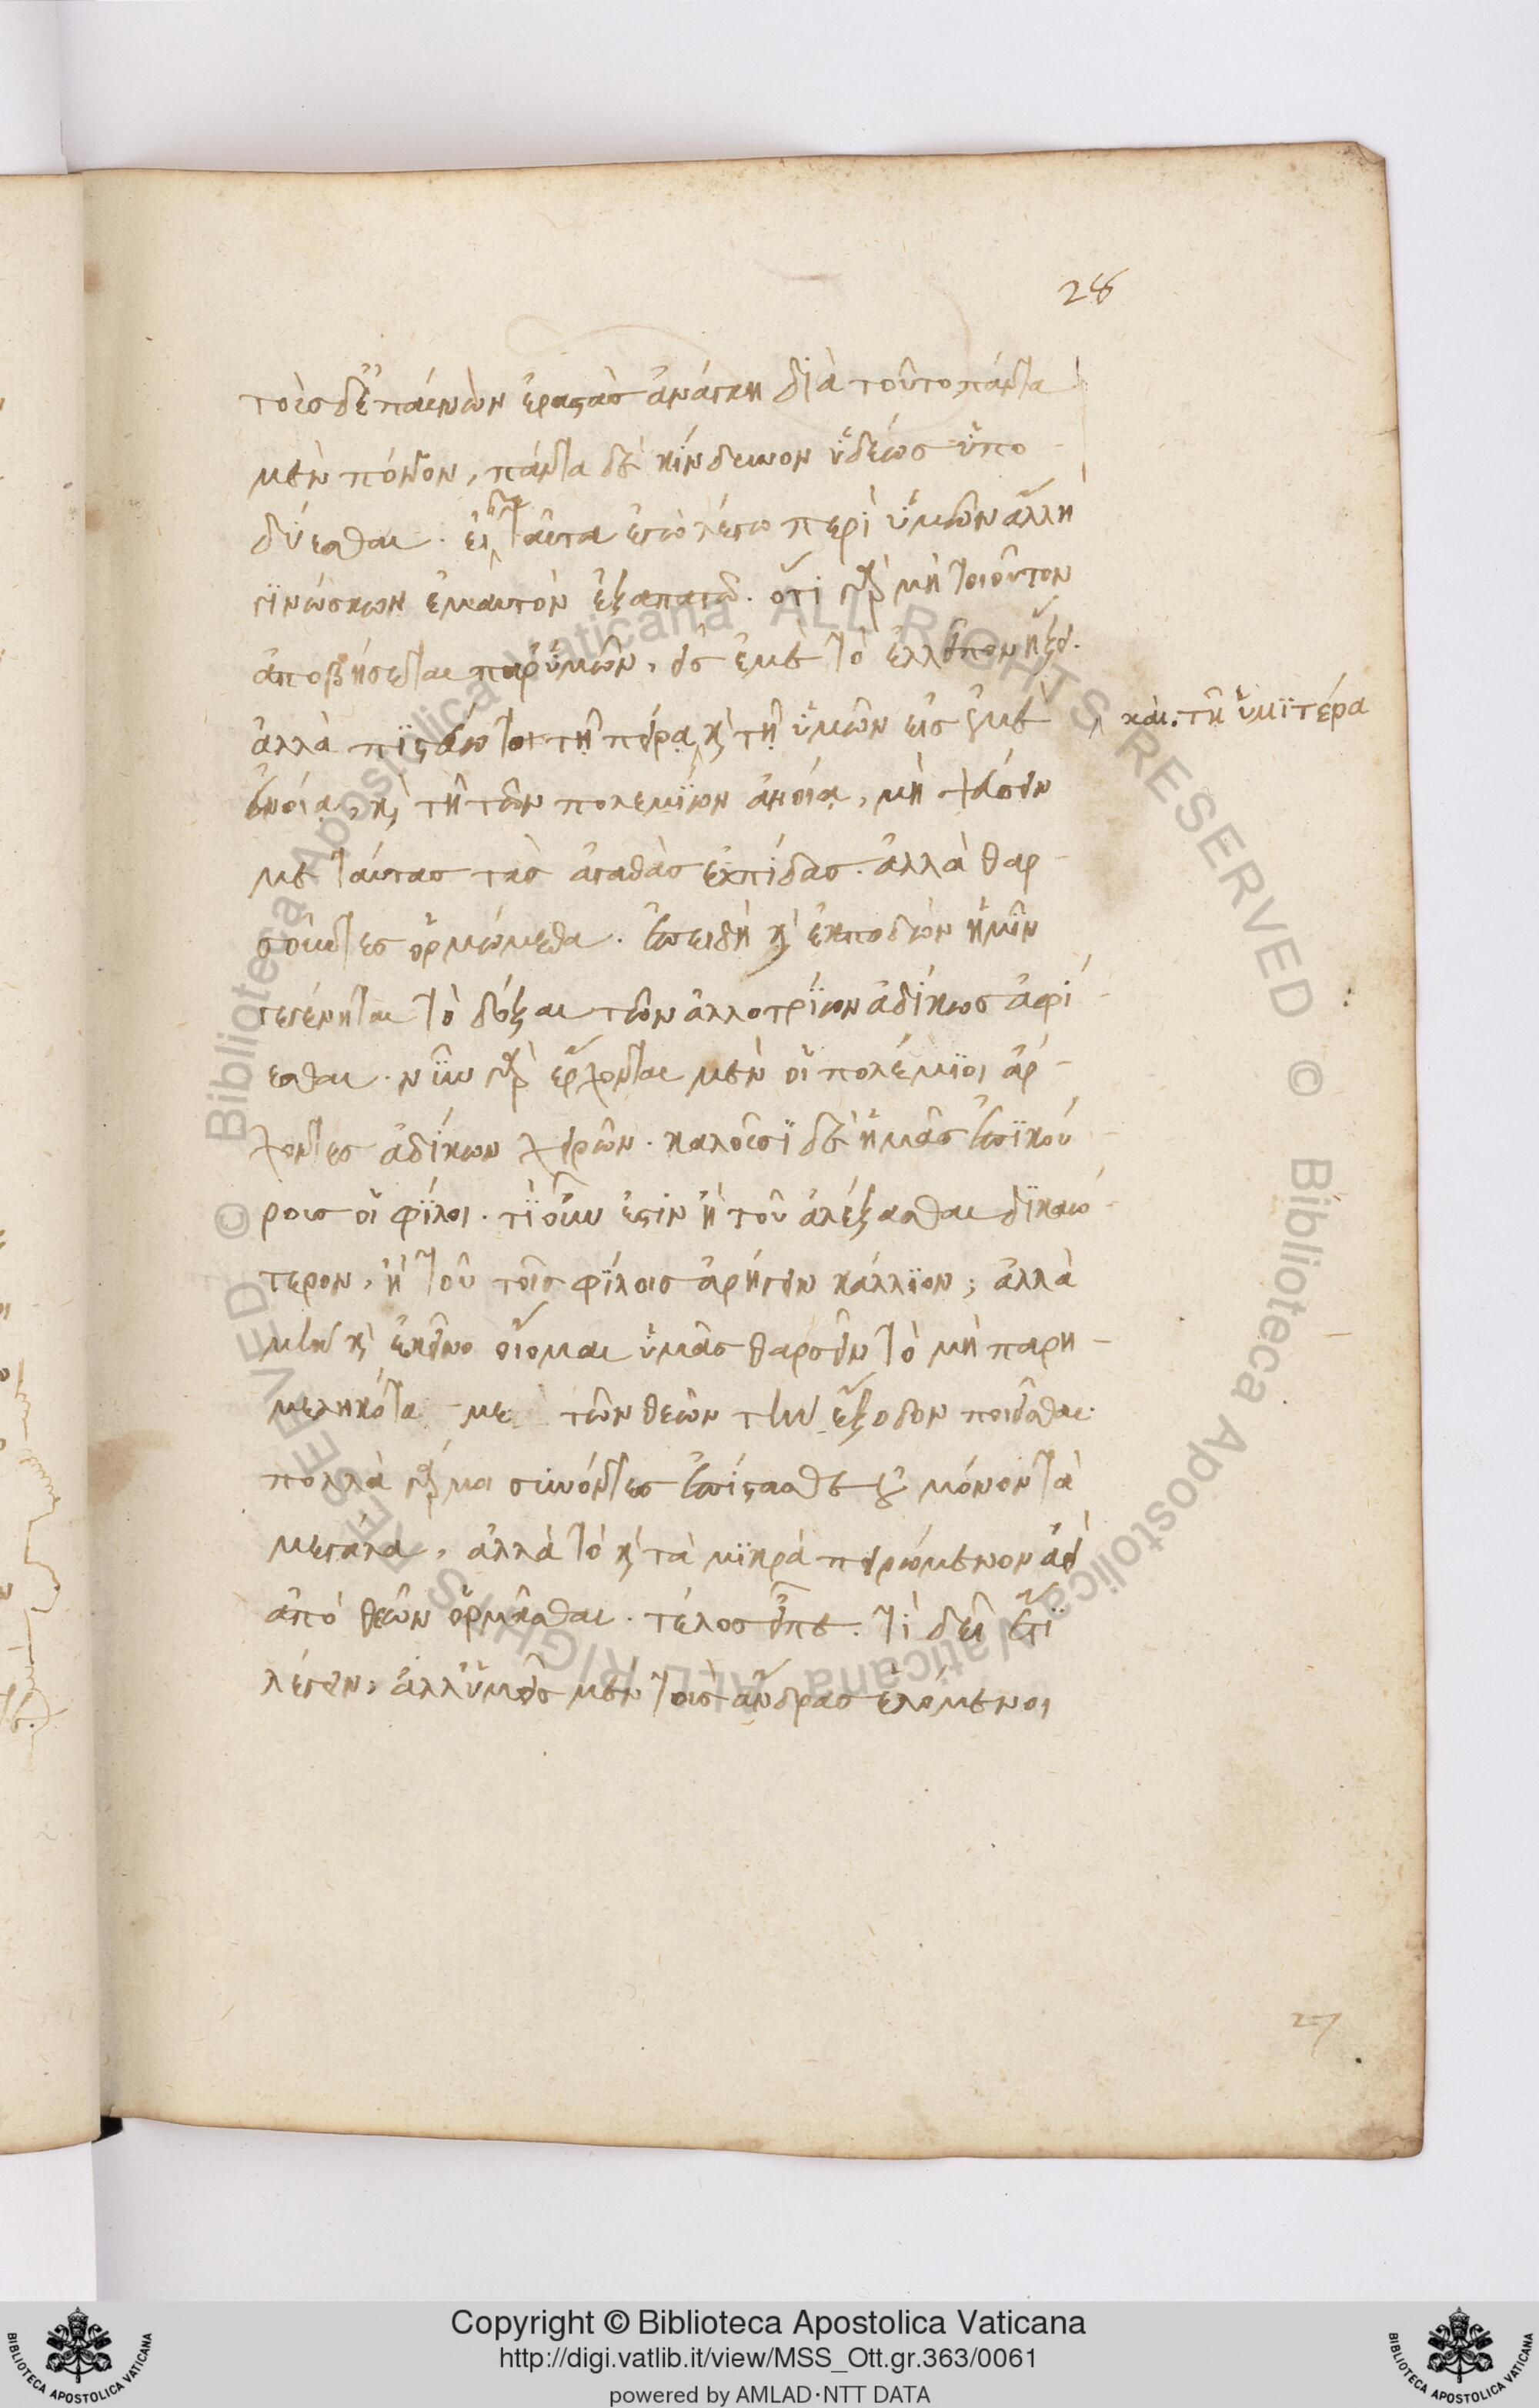 28
τοὺς δ' ἐπαίνων ἐραστὰς ἀνάγκη διὰ τοῦτο πάντα
μὲν πόνον, πάντα δὲ κίνδυνον ὑδέως ὑπο
δύεσθαι. εἰ δὲ ταῦτα ἐγὼ λέγω περὶ ὑμῶν ἄλλη
γϊνώσκων ἐμαυτὸν ἐξαπατῶ. ὅτι γὰρ μὴ τοιοῦτον
ἀποβήσεται παρ' ὑμῶν, εἰς ἐμὲ τὸ ἐλλεῖπον ἥξει.
ἀλλὰ πϊστεύω τοι τῇ πείρᾳ κ τῇ ὑμῶν εἰς ἐμὲ
καὶ τῇ ὑμϊτέρα
εὐνοίᾳ, κ τῇ τῶν πολεμίων ἀνοίᾳ, μὴ ψεύσειν
με ταύτας τὰς ἀγαθὰς ἐλπίδας. ἀλλὰ θαρ
σοῦντες ὁρμώμεθα. ἐπειδὴ κ ἐκποδὼν ἡμῖν
γεγένηται τὸ δόξαι τῶν ἀλλοτρίων ἀδίκως ἀφί
εσθαι. νῦν γὰρ ἔρχονται μὲν οἱ πολέμϊοι ἄρ
χοντες ἀδίκων χειρῶν. καλοῦσϊ δὲ ἡμᾶς ἐπϊκού
ρους οἱ φίλοι. τί οὖν ἐστὶν ἢ τοῦ ἀλέξασθαι δϊκαιό
τερον, ἢ τοῦ τοῖς φίλοις ἀρήγειν κάλλϊον; ἀλλὰ
μὴν κ ἐκεῖνο οἴομαι ὑμᾶς θαρσεῖν τὸ μὴ παρη
μεληκότα με τῶν θεῶν τὴν ἔξοδον ποιεῖσθαι.
πολλὰ γάρ μοι συνόντες ἐπίστασθε οὐ μόνον τὰ
μεγάλα, ἀλλὰ τὸ κ τὰ μϊκρὰ πειρώμενον ἀεὶ
ἀπὸ θεῶν ὁρμᾶσθαι. τέλος εἶπε. τί δεῖ ἔτϊ
λέγειν, ἀλλ' ὑμεῖς μὲν τοὺς ἄνδρας ἑλόμενοι
27
Copyright © Biblioteca Apostolica Vaticana
http://digi.vatlib.it/view/MSS_Ott.gr.363/0061
powered by AMLAD·NTT DATA